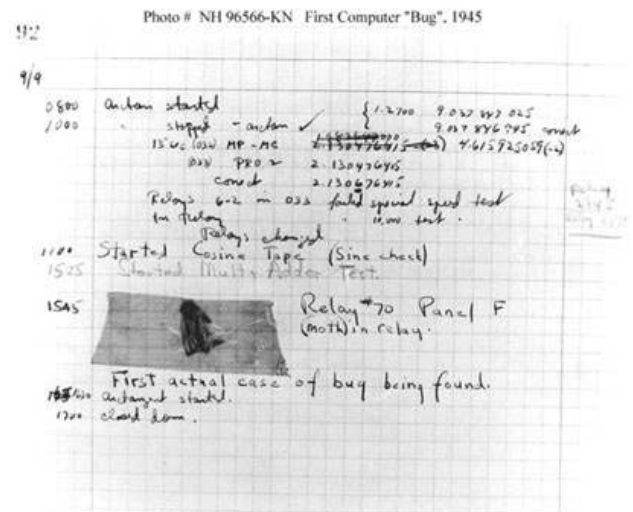 Photo # NH 96566-KN First Computer "Bug", 1945
92
9/9
0800 Antan started
1000 " stopped - antan ✓ { 1.2700 9.037 847 025
9.037 846 995 correct
13"uc (032) MP - MC 2.130476415 4.615925059(-2)
033 PRO 2 2.130476415
correct 2.130676415
Relays 6-2 in 033 failed special speed test
in relay " 10.000 test .
Relays changed
1100 Started Cosine Tape (Sine check)
1525 Started Multi Adder Test.
1545 Relay #70 Panel F
(moth) in relay.
First actual case of bug being found.
1630 antangent started.
1700 closed down.